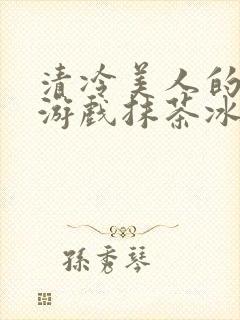 清冷美人的
游戏抹茶冰
孫秀琴